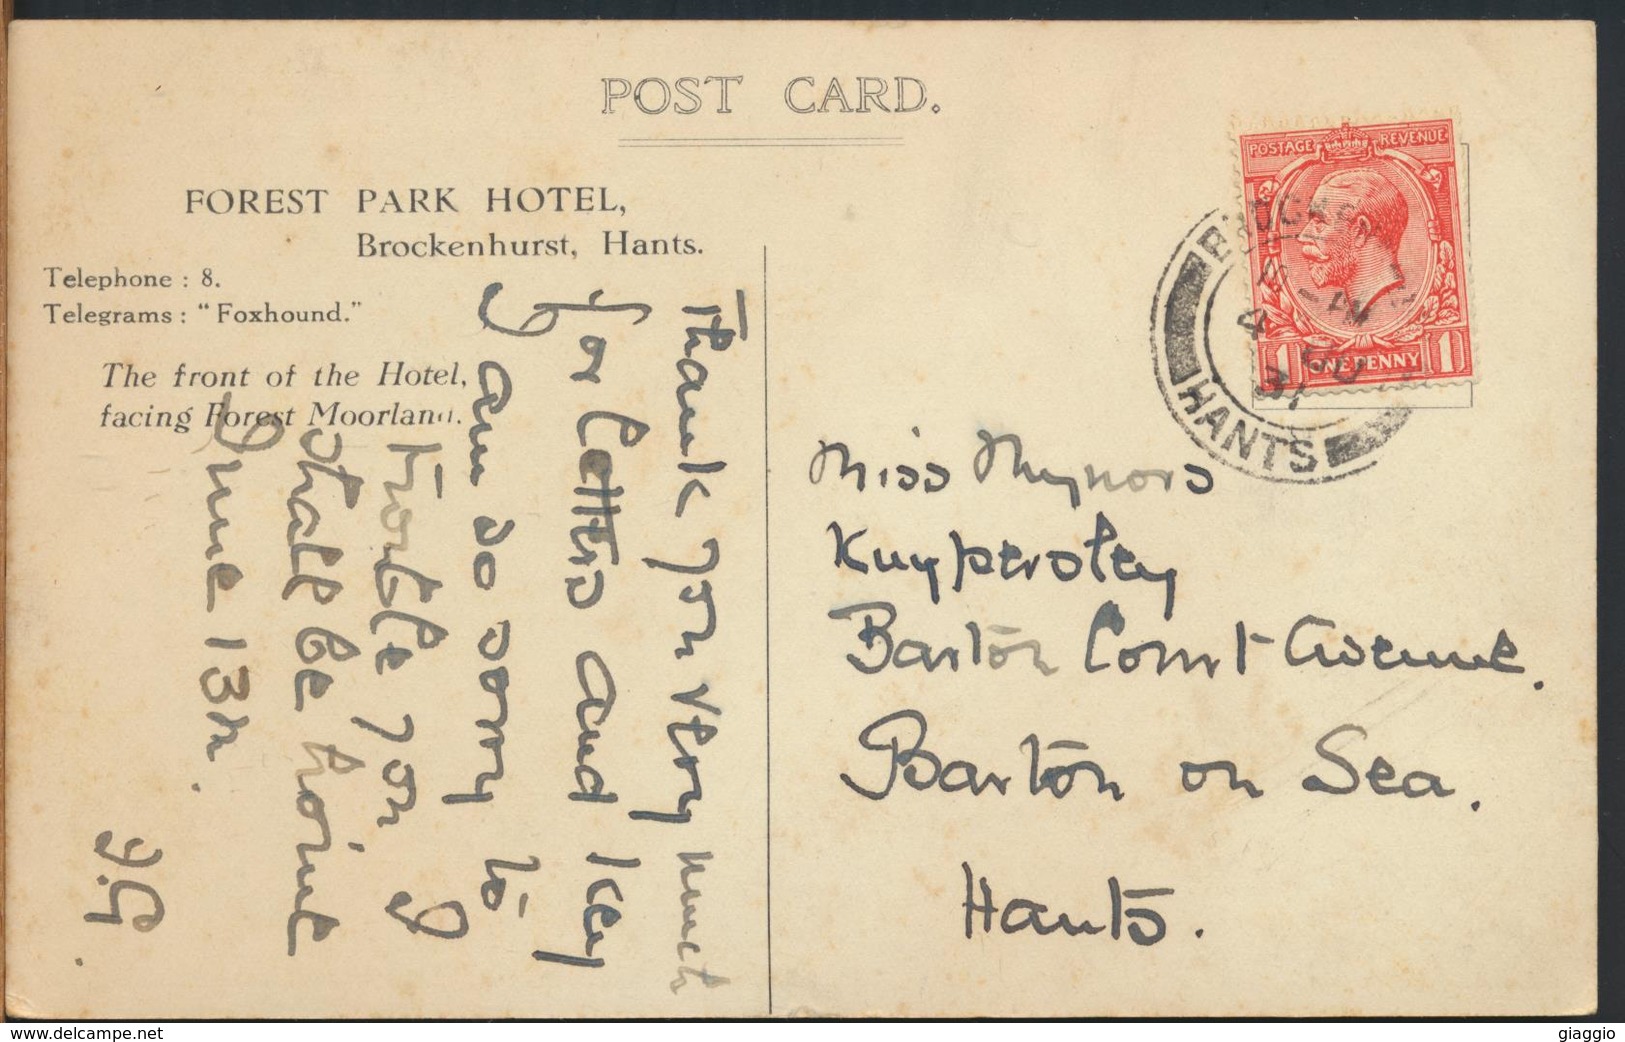 POST CARD.
FOREST PARK HOTEL,
Brockenhurst, Hants.
Telephone : 8.
Telegrams : "Foxhound."
The front of the Hotel,
facing Forest Moorland.
Thank you very much
for letters and key
I am so sorry to
trouble you I
shall be home
June 13th.
J.G.
POSTAGE REVENUE
1 ONE PENNY 1
HANTS
Miss Mynors
Kuypersley
Barton Court Avenue.
Barton on Sea.
Hants.
giaggio